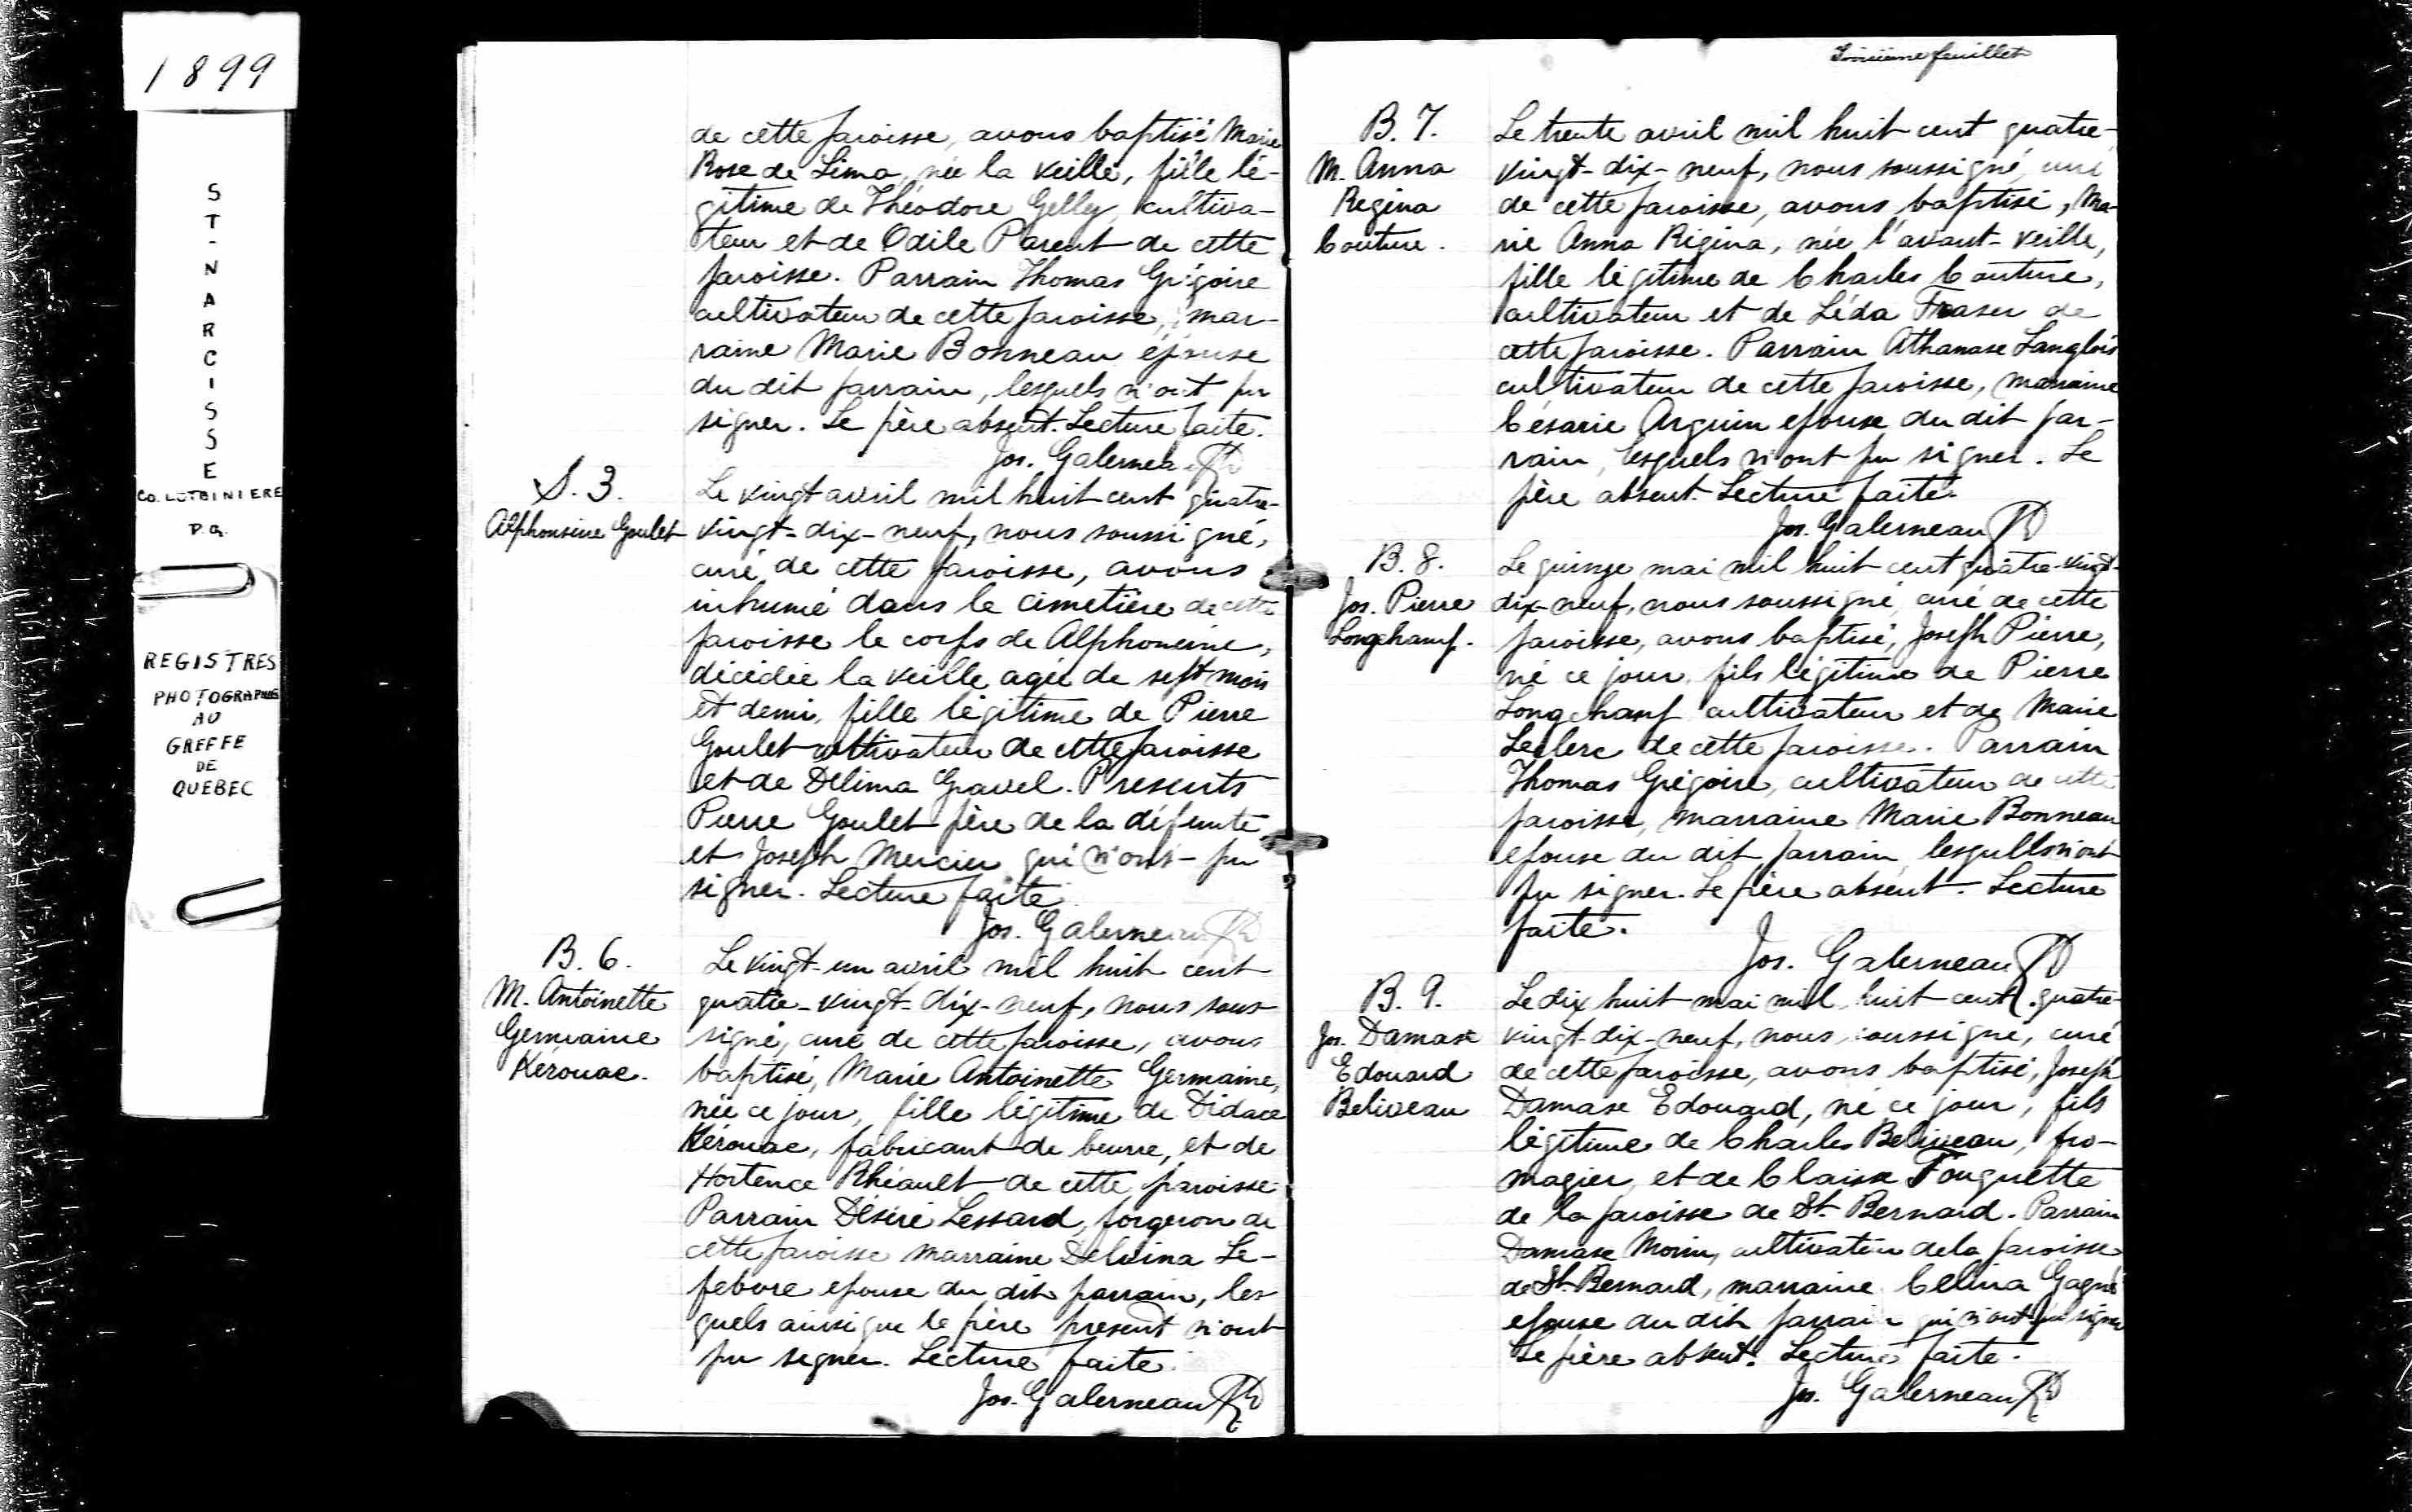 1899
ST-NARCISSE
CO. LOTBINIERE
P.Q.
REGISTRES
PHOTOGRAPHIÉS
AU
GREFFE
DE
QUEBEC
de cette paroisse, avons baptisé Marie
Rose de Lima, née la veille, fille lé-
gitime de Théodore Gelley, cultiva-
teur et de Odile Parent de cette
paroisse. Parrain Thomas Grégoire
cultivateur de cette paroisse, mar-
raine Marie Bonneau épouse
du dit parrain, lesquels n'ont pu
signer. Le père absent. Lecture faite.
Jos. Galerneau Ptr
S. 3.
Alphonsine Goulet
Le vingt avril mil huit cent quatre-
vingt-dix-neuf, nous soussigné,
curé de cette paroisse, avons
inhumé dans le cimetière de cette
paroisse le corps de Alphonsine,
décédée la veille, agée de sept mois
et demi, fille légitime de Pierre
Goulet cultivateur de cette paroisse
et de Delima Gravel. Presents
Pierre Goulet père de la défunte
et Joseph Mercier qui n'ont pu
signer. Lecture faite.
Jos. Galerneau Ptr
B. 6.
M. Antoinette
Germaine
Kérouac.
Le vingt-un avril mil huit cent
quatre-vingt-dix-neuf, nous sous-
signé, curé de cette paroisse, avons
baptisé, Marie Antoinette Germaine,
née ce jour, fille légitime de Didace
Kérouac, fabricant de beurre, et de
Hortence Rhéault de cette paroisse.
Parrain Désiré Lessard, forgeron de
cette paroisse marraine Delvina Le-
febvre epouse du dit parrain, les
quels ainsi que le père present n'ont
pu signer. Lecture faite.
Jos. Galerneau Ptr
Troisième feuillet
B. 7.
M. Anna
Regina
Couture.
Le trente avril mil huit cent quatre-
vingt-dix-neuf, nous soussigné, curé
de cette paroisse, avons baptisé, Ma-
rie Anna Régina, née l'avant-veille,
fille légitime de Charles Couture,
cultivateur et de Léda Fraser de
cette paroisse. Parrain Athanase Langlois
cultivateur de cette paroisse, marraine
Césarie Arguin epouse du dit par-
rain, lesquels n'ont pu signer. Le
père absent. Lecture faite.
Jos. Galerneau Ptr
B. 8.
Jos. Pierre
Longchamp.
Le quinze mai mil huit cent quatre-vingt-
dix-neuf, nous soussigné, curé de cette
paroisse, avons baptisé, Joseph Pierre,
né ce jour, fils légitime de Pierre
Longchamp cultivateur et de Marie
Leclerc de cette paroisse. Parrain
Thomas Grégoire, cultivateur de cette
paroisse, marraine Marie Bonneau
epouse du dit parrain lesquels n'ont
pu signer. Le père absent. Lecture
faite.
Jos. Galerneau Ptr
B. 9.
Jos. Damase
Edouard
Beliveau
Le dix huit mai mil huit cent quatre-
vingt-dix-neuf, nous soussigné, curé
de cette paroisse, avons baptisé, Joseph
Damase Edouard, né ce jour, fils
légitime de Charles Beliveau, fro-
magier, et de Claisse Fouquette
de la paroisse de St. Bernard. Parrain
Damase Morin, cultivateur de la paroisse
de St. Bernard, marraine Célina Gagné
epouse du dit parrain qui n'ont pu signer
Le père absent. Lecture faite.
Jos. Galerneau Ptr